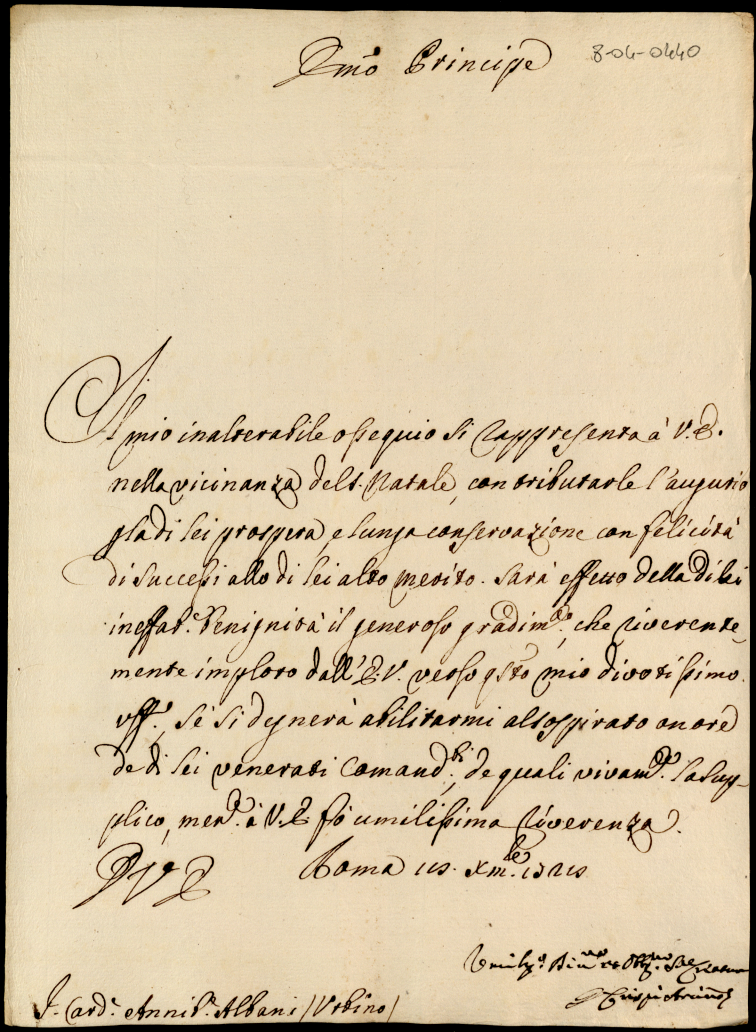 Em̃o Principe 8-04-0440
Il mio inalterabile ossequio si rappresenta à V. E.
nella vicinanza del S. Natale, con tributarle l'augurio
p la di lei prospera, e lunga conservazione con felicità
di successi allo di lei alto merito. Sarà effetto della di lei
ineffab.e benignità il generoso gradim.to, che riverente
mente imploro dall'E. V. verso q̃sto mio divotissimo
uff.o, se si degnerà abilitarmi al sospirato onore
de di lei venerati Comand.ti, de quali vivam.te la sup-
plico, men.e à V. E. fò umilissima riverenza.
D V E Roma
Umil.o Div.mo et Obl.mo
S. Card.e Annib.e Albani / Urbino /